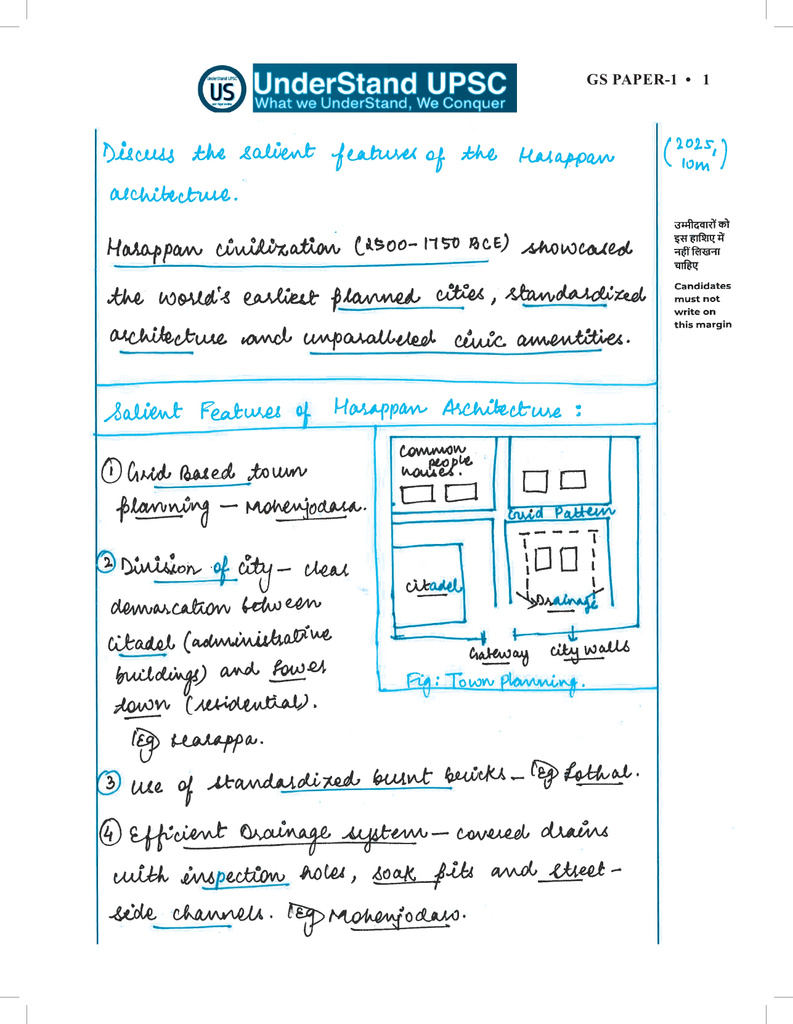 UnderStand UPSC
US
UnderStand UPSC
What we UnderStand, We Conquer
GS PAPER-1 • 1
Discuss the salient features of the Harappan
architecture.
(2025,
10m)
उम्मीदवारों को
इस हाशिए में
नहीं लिखना
चाहिए
Candidates
must not
write on
this margin
Harappan civilization (2500-1750 BCE) showcased
the world's earliest planned cities, standardized
architecture and unparalleled civic amentities.
Salient Features of Harappan Architecture:
① Grid Based town
planning – Mohenjodaro.
② Division of city – clear
demarcation between
citadel (administrative
buildings) and lower
town (residential).
Eg Harappa.
Common
people
houses.
Grid Pattern
citadel
Drainage
Gateway
city walls
Fig: Town Planning.
③ Use of standardized burnt bricks – Eg Lothal.
④ Efficient Drainage system – covered drains
with inspection holes, soak pits and street-
side channels. Eg Mohenjodaro.